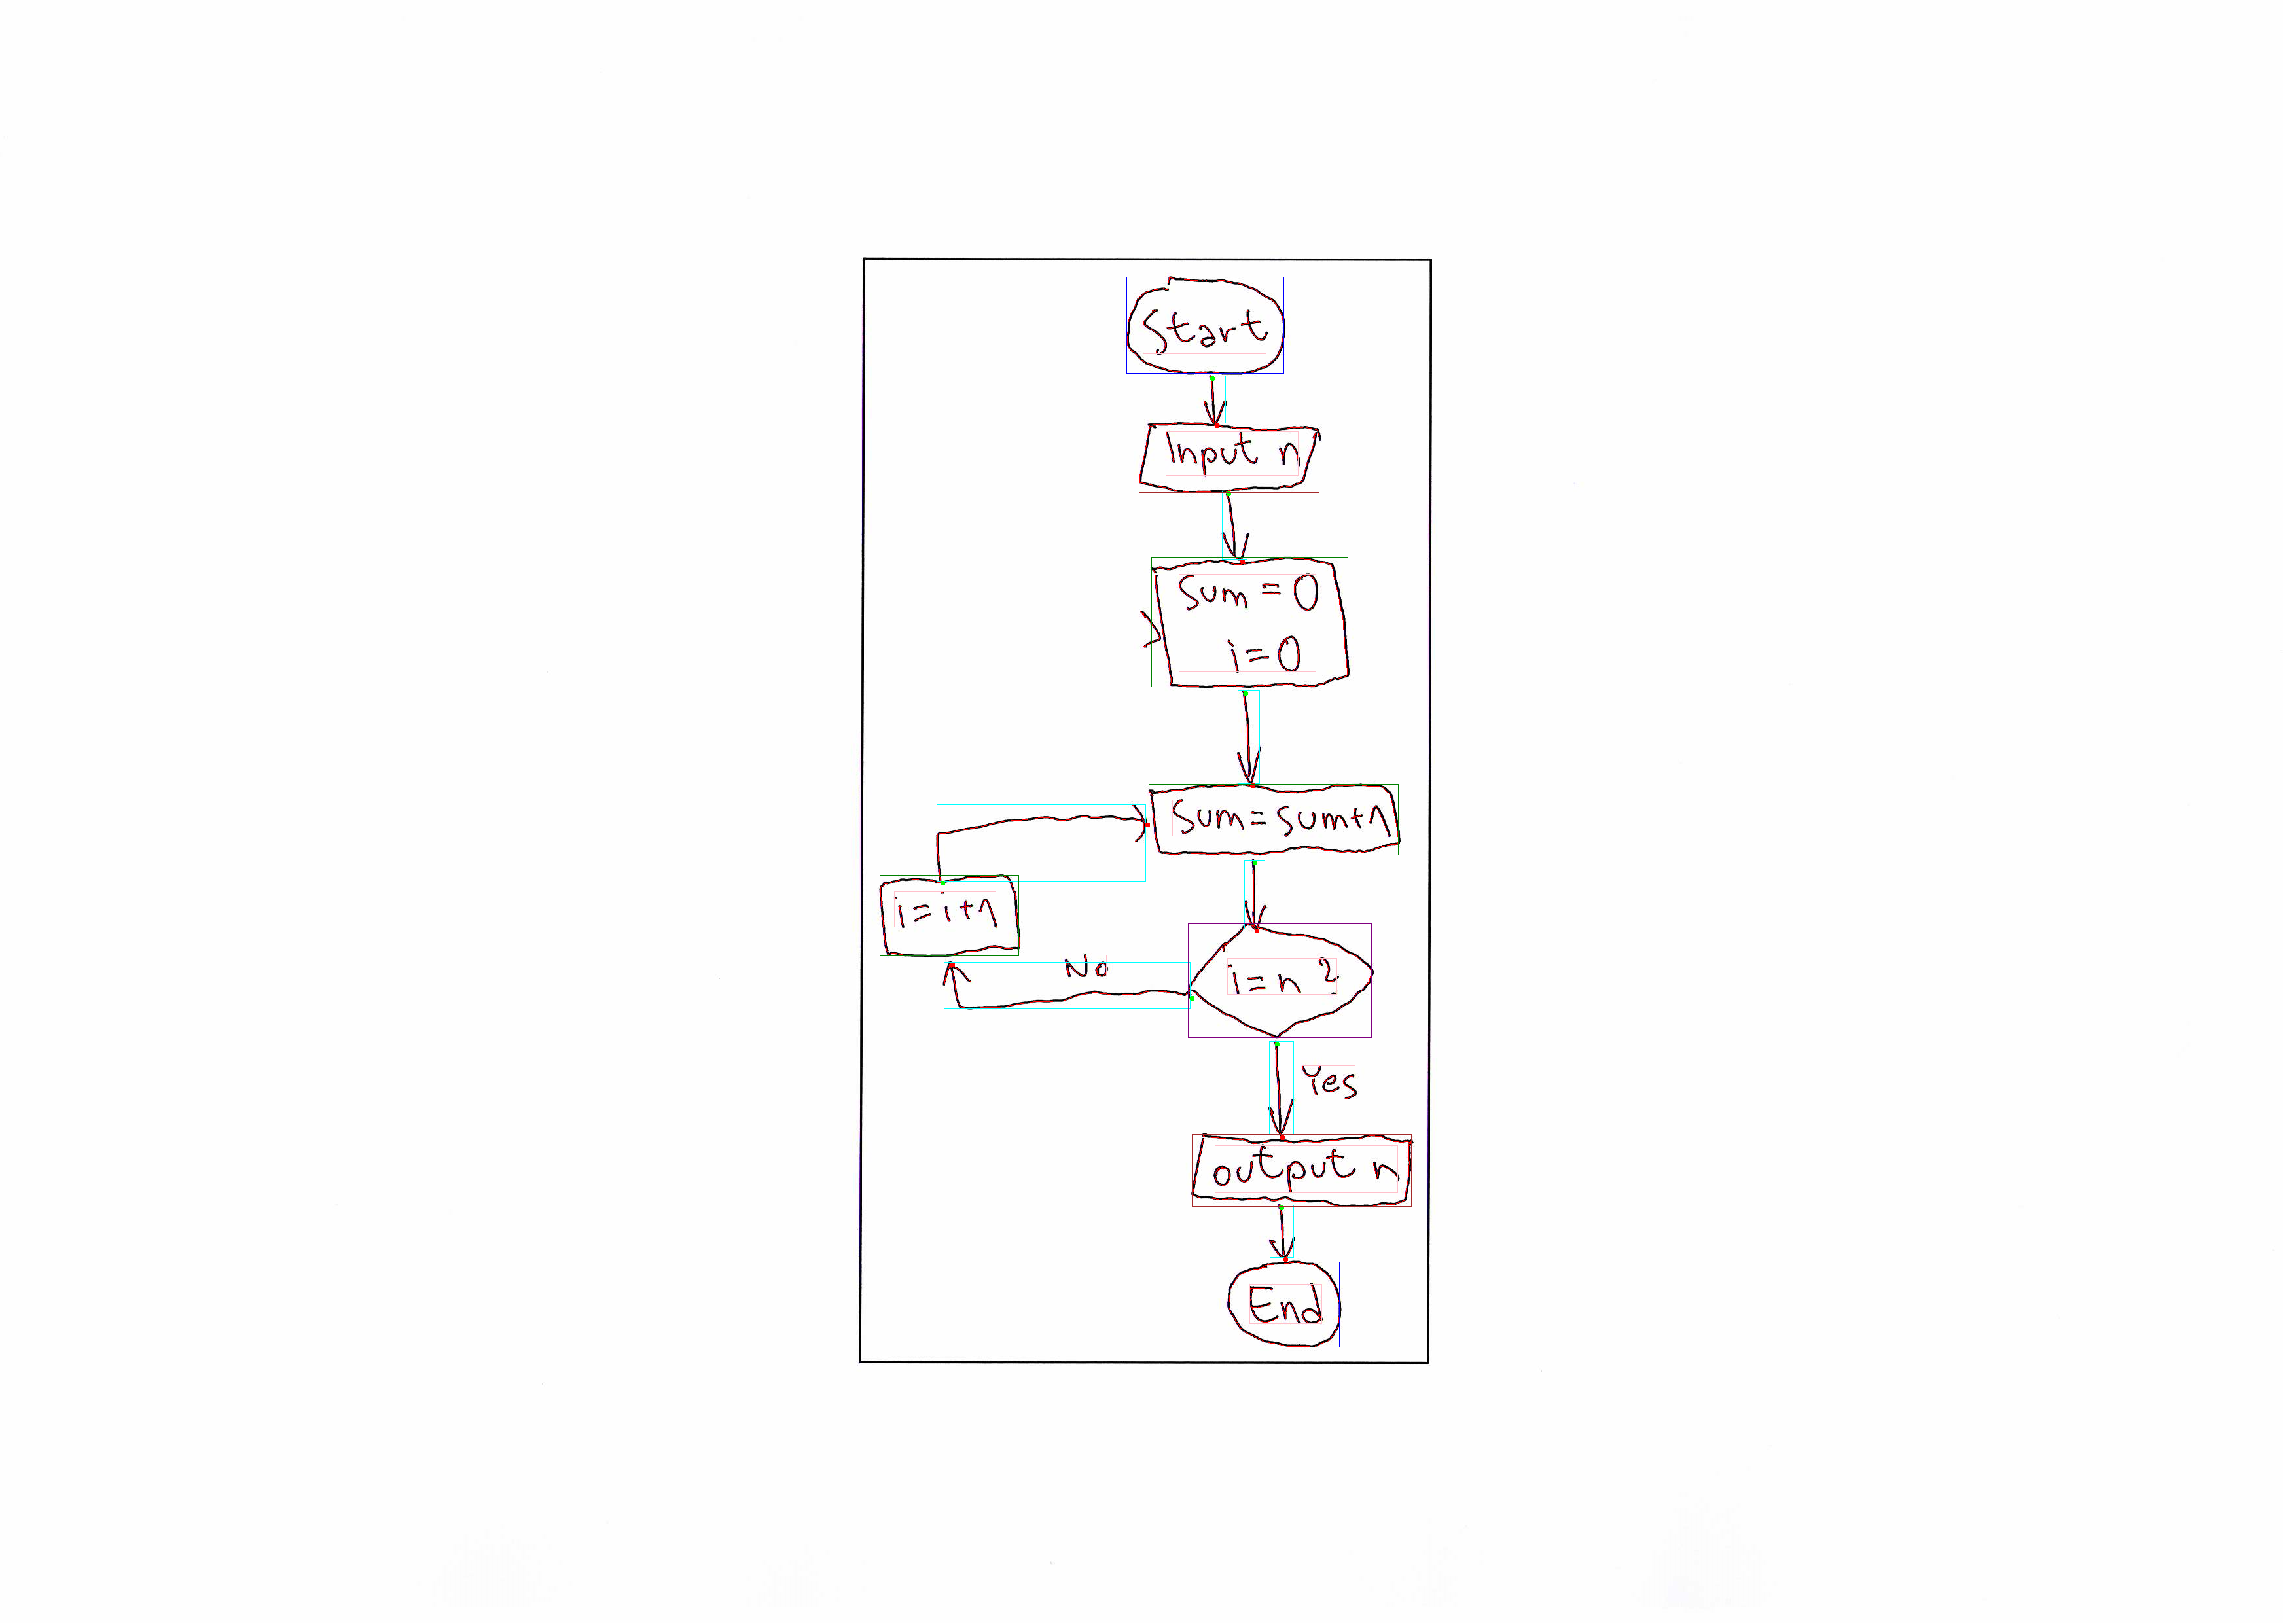 Start
Input n
Sum = 0
i = 0
Sum = Sum + 1
i = i + 1
No
i = n ?
Yes
output n
End